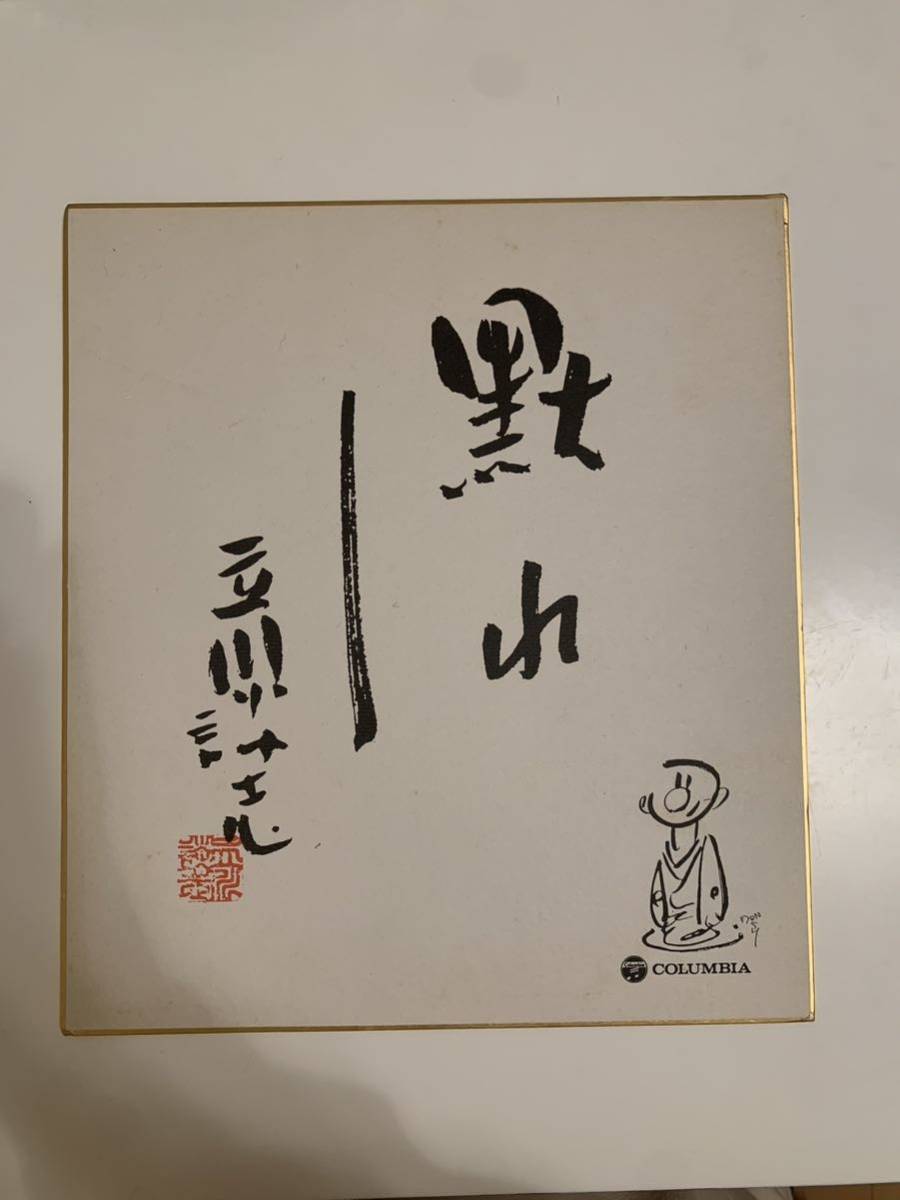 默れ
立川談志
COLUMBIA